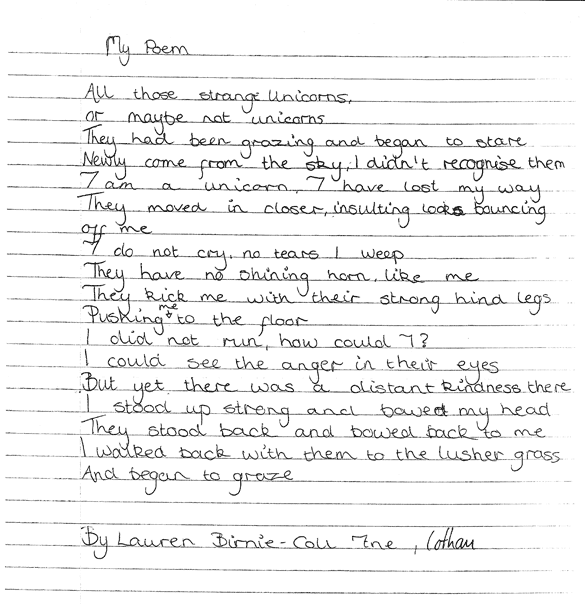 My Poem
All those strange Unicorns,
or maybe not unicorns
They had been grazing and began to stare
Newly come from the sky, I didn't recognise them
I am a unicorn, I have lost my way
They moved in closer, insulting looks bouncing
off me
I do not cry, no tears I weep
They have no shining horn, like me
They kick me with their strong hind legs
Pushing me to the floor
I did not run, how could I?
I could see the anger in their eyes
But yet there was a distant kindness there
I stood up strong and bowed my head
They stood back and bowed back to me
I walked back with them to the lusher grass
And began to graze
By Lauren Birnie-Coll 7ne,